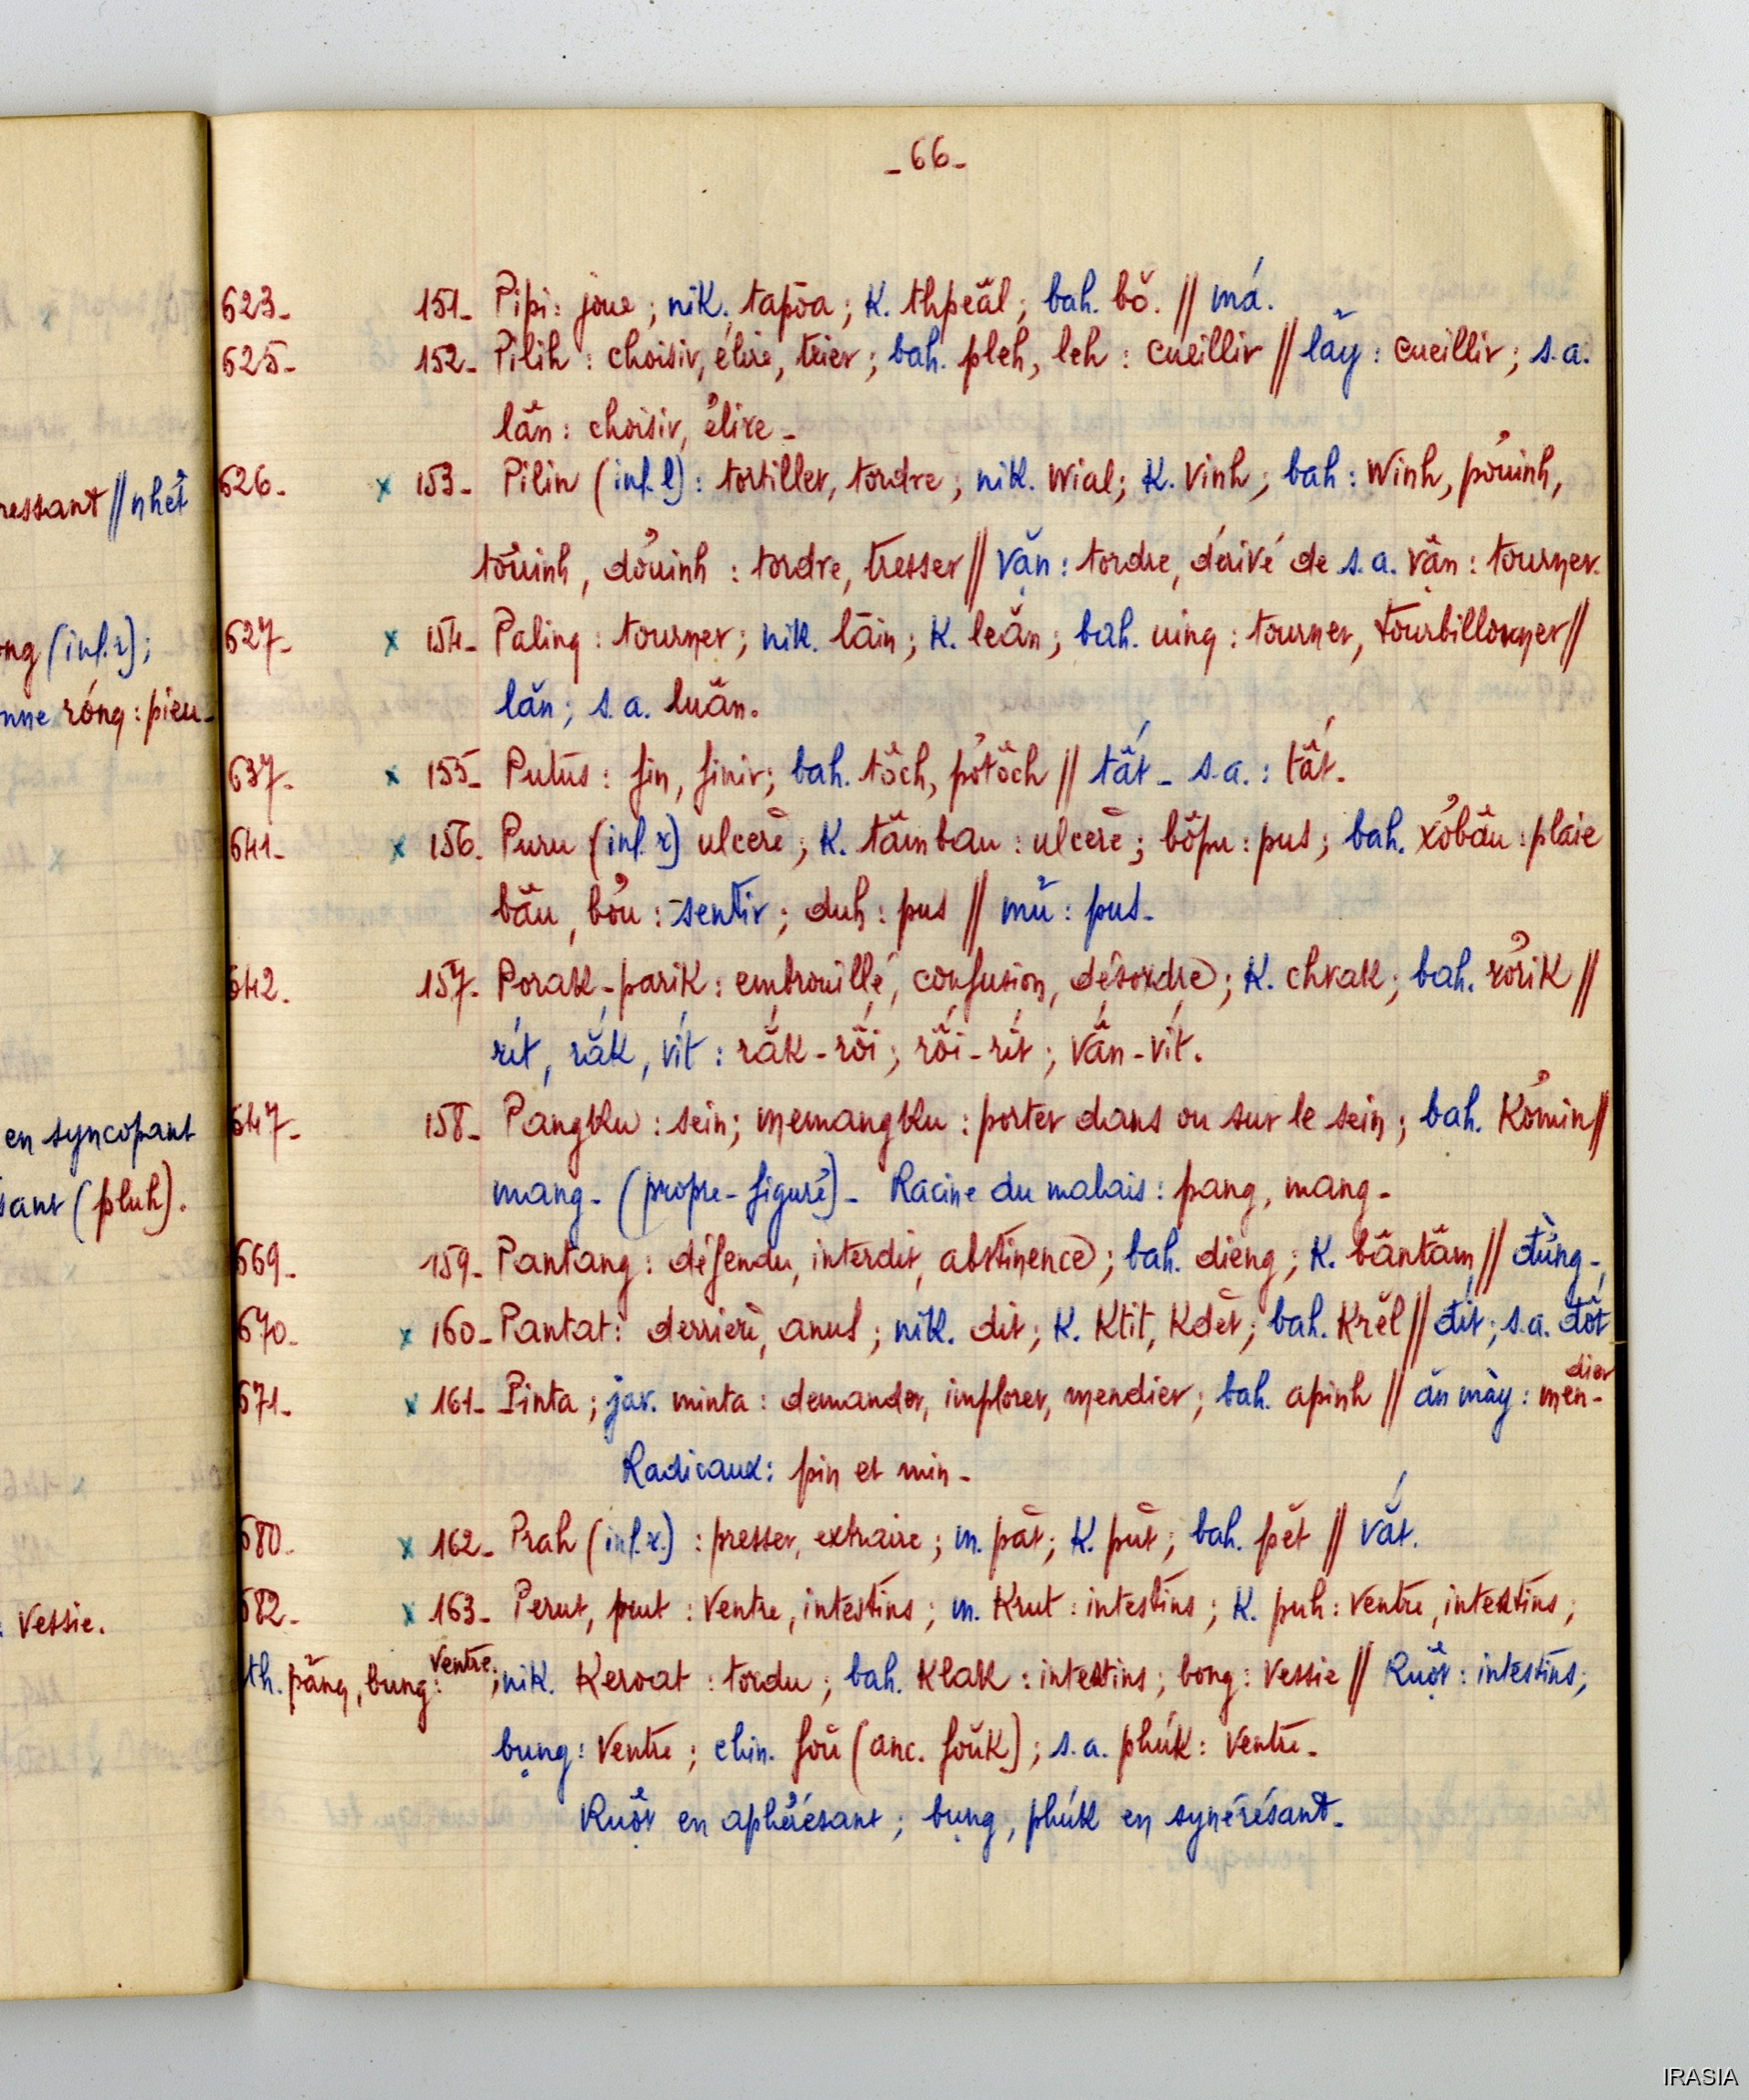 _ 66 _
623- 151- Pipi : joue ; nik. tapōa ; K. thpeăl ; bah. bŏ. // má.
625- 152- Pilih : choisir, élire, trier ; bah. pleh, leh : cueillir // lãy : cueillir ; s.a.
lân : choisir, élire -
626- x 153- Pilin (inf. l) : tortiller, tordre ; nik. Wial ; K. Vinh ; bah : Winh, pơuinh,
tơuinh, dơuinh : tordre, tresser // vặn : tordre, dérivé de s.a. vận : tourner.
627- x 154- Paling : tourner ; nik. lāin ; K. leăn ; bah. uing : tourner, tourbillonner //
lăn ; s.a. luân.
637- x 155- Putus : fin, finir ; bah. tŏch, pơtŏch // tất - s.a. : tất.
641- x 156. Puru (inf. r) ulcère ; K. tămbau : ulcère ; bŏpu : pus ; bah. xơbâu : plaie
bâu, bơu : sentir ; duh : pus // mủ : pus -
642. 157- Porak-parik : embrouillé, confusion, désordre ; K. chrak ; bah. rơrik //
rít, rắk, vít : rắk-rối ; rối-rít ; vấn-vít.
647- 158- Pangku : sein ; memangku : porter dans ou sur le sein ; bah. Kơmin //
mang - (propre-figuré) - Racine du malais : pang, mang -
669- 159- Pantang : défendu, interdit, abstinence ; bah. dieng ; K. bântăm // đừng -
670- x 160- Pantat : derrière, anus ; nik. dit ; K. Ktit, Kdĕt ; bah. Krĕl // đít ; s.a. đốt
671- x 161- Pinta ; jav. minta : demander, implorer, mendier ; bah. apinh // ăn mày : men-
dier
Radicaux : pin et min -
680- x 162- Prah (inf. r.) : presser, extraire ; m. păt ; K. pŭt ; bah. pĕt // vắt.
682- x 163- Perut, prut : ventre, intestins ; m. Krut : intestins ; K. puh : ventre, intestins ;
th. pāng, bung : ventre ; nik. Keroat : tordu ; bah. Klak : intestins ; bong : vessie // Ruột : intestins ;
bụng : ventre ; chin. foŭ (anc. foŭk) ; s.a. phúk : ventre -
Ruột en aphérésant ; bụng, phúk en synérésant -
ressant // nhét
ong (inf. r) ;
nne róng : pieu-
en syncopant
sant (pluh).
: vessie.
IRASIA